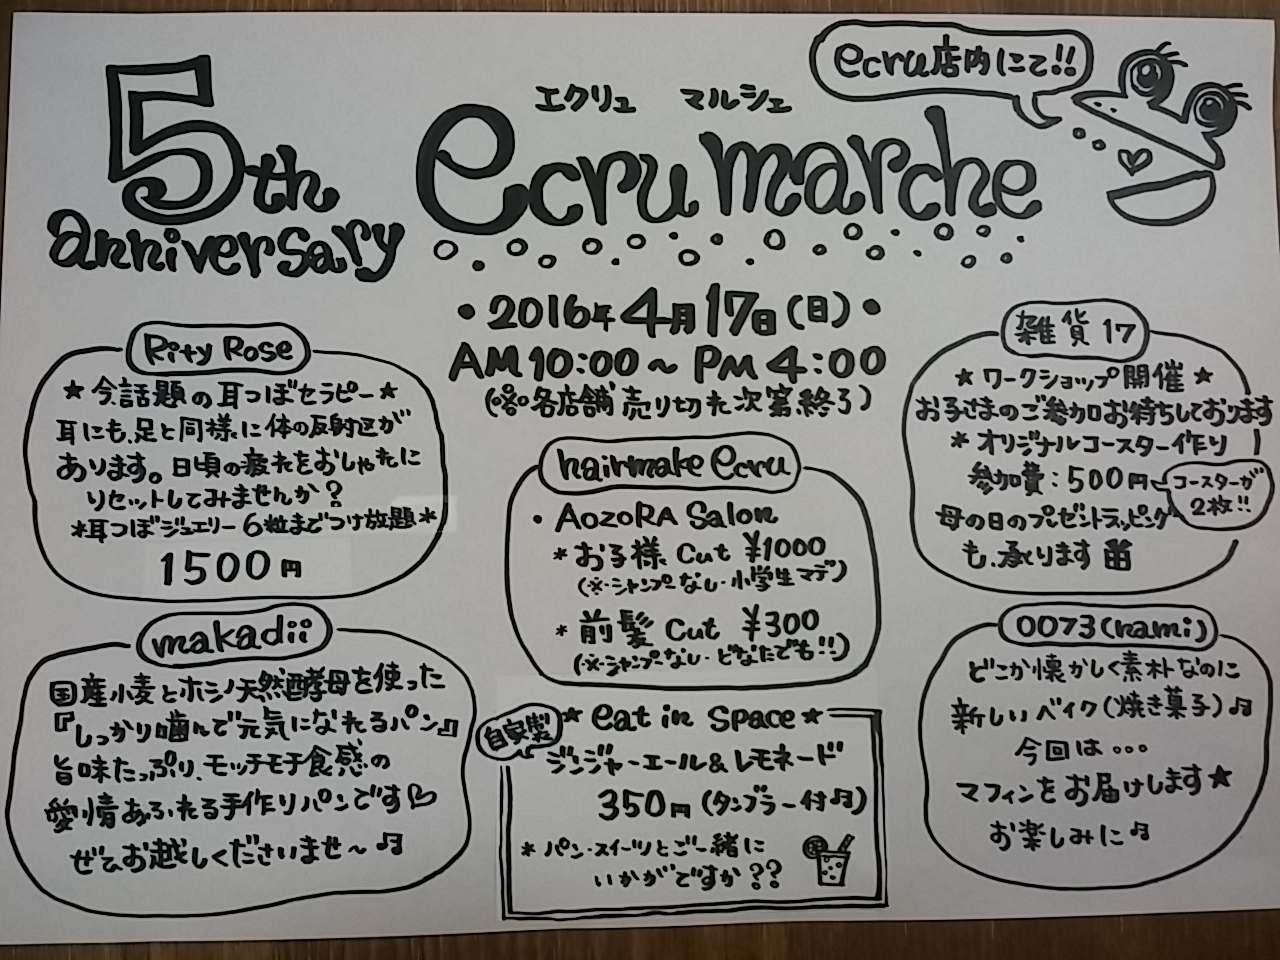 5th
anniversary
エクリュ マルシェ
ecru marche
ecru店内にて!!
・2016年4月17日(日)・
AM10:00～PM4:00
(※各店舗売り切れ次第終了)
Rity Rose
★今話題の耳つぼセラピー★
耳にも、足と同様に体の反射区が
あります。日頃の疲れをおしゃれに
リセットしてみませんか？
*耳つぼジュエリー6粒までつけ放題*
1500円
makadii
国産小麦とホシノ天然酵母を使った
『しっかり噛んで元気になれるパン』
旨味たっぷり、モッチモチ食感の
愛情あふれる手作りパンです♡
ぜひお越しくださいませ～♫
hairmake ecru
・AOZORA Salon
*お子様 Cut ¥1000
(※シャンプーなし・小学生マデ)
*前髪 Cut ¥300
(※シャンプーなし・どなたでも!!)
自家製
★eat in space★
ジンジャーエール&レモネード
350円(タンブラー付♫)
*パン・スイーツとご一緒に
いかがですか??
雑貨17
★ワークショップ開催★
お子さまのご参加お待ちしております
*オリジナルコースター作り
参加費：500円
コースターが
2枚!!
母の日のプレゼントラッピング
も、承ります
0073(nami)
どこか懐かしく素朴なのに
新しいベイク(焼き菓子)♫
今回は・・・
マフィンをお届けします★
お楽しみに♫